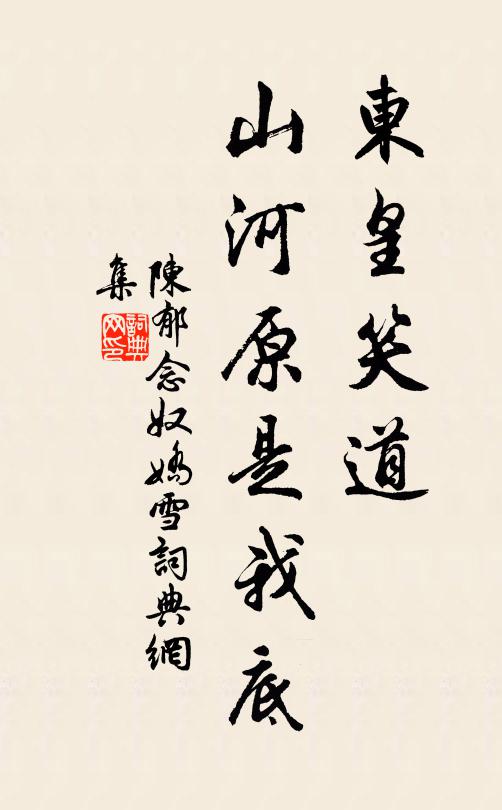 東皇笑道
山河原是我底
陳郁念奴嬌雪詞典網
集
詞典網印